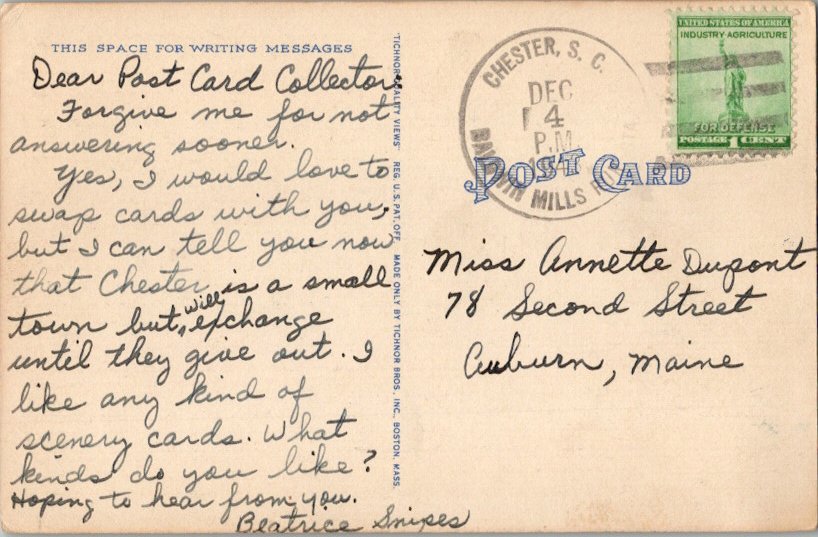 THIS SPACE FOR WRITING MESSAGES
Dear Post Card Collector,
Forgive me for not
answering sooner.
Yes, I would love to
swap cards with you,
but I can tell you now
that Chester is a small
town but, will exchange
until they give out. I
like any kind of
scenery cards. What
kinds do you like?
Hoping to hear from you.
Beatrice Snipes
"TICHNOR QUALITY VIEWS" REG. U.S. PAT. OFF. MADE ONLY BY TICHNOR BROS., INC., BOSTON, MASS.
CHESTER, S. C.
DEC
4
P.M
MILLS
POST CARD
UNITED STATES OF AMERICA
INDUSTRY·AGRICULTURE
FOR DEFENSE
POSTAGE 1 CENT
Miss Annette Dupont
78 Second Street
Auburn, Maine